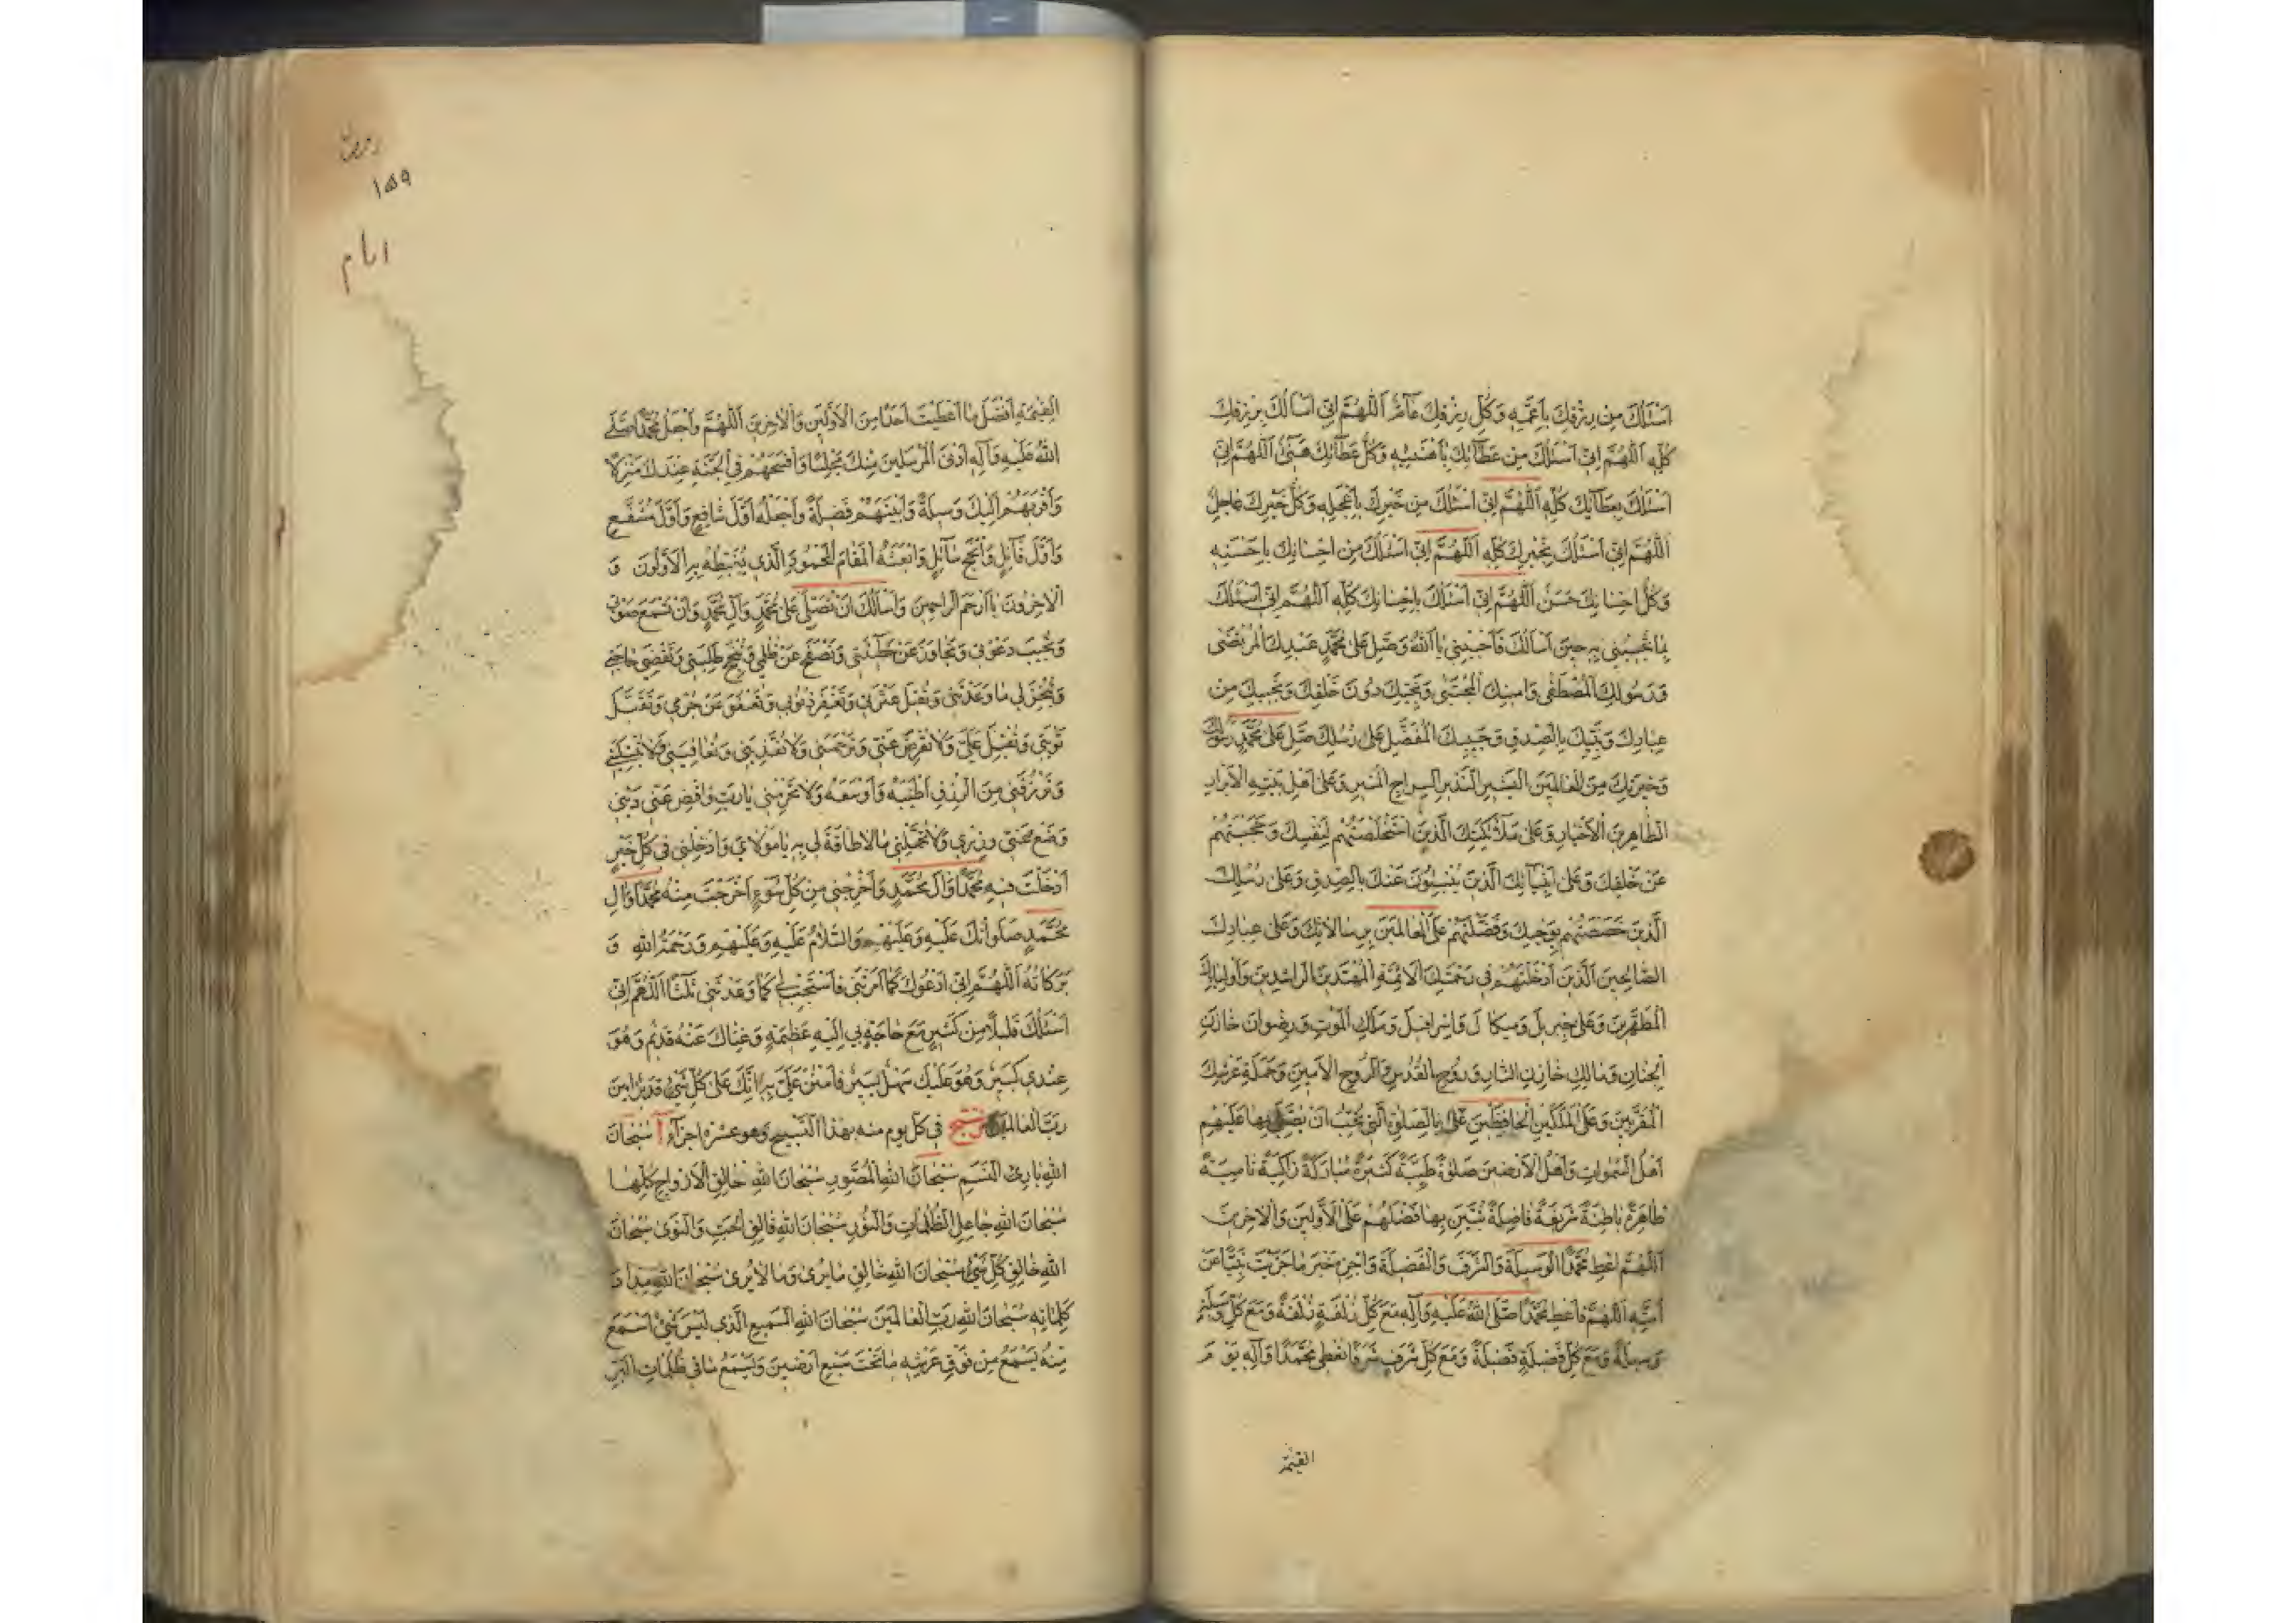 اَسْئَلُكَ مِنْ رِزْقِكَ بِاَعَمِّهِ وَكُلُّ رِزْقِكَ عَآمٌّ اَللّٰهُمَّ اِنّى اَسْاَلُكَ بِرِزْقِكَ
كُلِّهِ اَللّٰهُمَّ اِنّى اَسْئَلُكَ مِنْ عَطآئِكَ بِاَهْنَئِهِ وَكُلُّ عَطآئِكَ هَنيٌ اَللّٰهُمَّ اِنّى
اَسْئَلُكَ بِعَطآئِكَ كُلِّهِ اَللّٰهُمَّ اِنّى اَسْئَلُكَ مِنْ خَيْرِكَ بِاَعْجَلِهِ وَكُلُّ خَيْرِكَ عاجِلٌ
اَللّٰهُمَّ اِنّى اَسْئَلُكَ بِخَيْرِكَ كُلِّهِ اَللّٰهُمَّ اِنّى اَسْئَلُكَ مِنْ اِحْسانِكَ بِاَحْسَنِهِ
وَكُلُّ اِحْسانِكَ حَسَنٌ اَللّٰهُمَّ اِنّى اَسْئَلُكَ بِاِحْسانِكَ كُلِّهِ اَللّٰهُمَّ اِنّى اَسْئَلُكَ
بِما تُجيبُنى بِهِ حينَ اَسْاَلُكَ فَاَجِبْنى يا اَللهُ وَصَلِّ عَلى مُحَمَّدٍ عَبْدِكَ الْمُرْتَضى
وَرَسُولِكَ الْمُصْطَفى وَاَمينِكَ الْمُجْتَبى وَنَجِيِّكَ دُونَ خَلْقِكَ وَنَجيبِكَ مِنْ
عِبادِكَ وَنَبِيِّكَ بِالصِّدْقِ وَحَبيبِكَ الْمُفَضَّلِ عَلى رُسُلِكَ صَلِّ عَلى مُحَمَّدٍ رَسُولِكَ
وَخِيَرَتِكَ مِنَ الْعالَمينَ الْبَشيرِ النَّذيرِ السِّراجِ الْمُنيرِ وَعَلى اَهْلِ بَيْتِهِ الْاَبْرارِ
الطّاهِرينَ الْاَخْيارِ وَعَلى مَلآئِكَتِكَ الَّذينَ اسْتَخْلَصْتَهُمْ لِنَفْسِكَ وَحَجَبْتَهُمْ
عَنْ خَلْقِكَ وَعَلى اَنْبِيآئِكَ الَّذينَ يُنْبِئُونَ عَنْكَ بِالصِّدْقِ وَعَلى رُسُلِكَ
الَّذينَ خَصَصْتَهُمْ بِوَحْيِكَ وَفَضَّلْتَهُمْ عَلَى الْعالَمينَ بِرِسالاتِكَ وَعَلى عِبادِكَ
الصّالِحينَ الَّذينَ اَدْخَلْتَهُمْ فى رَحْمَتِكَ الْاَئِمَّةِ الْمُهْتَدينَ الرّاشِدينَ وَاَوْلِيائِكَ
الْمُطَهَّرينَ وَعَلى جَبْرَئيلَ وَميكالَ وَاِسْرافيلَ وَمَلَكِ الْمَوْتِ وَرِضْوانَ خازِنِ
الْجِنانِ وَمالِكٍ خازِنِ النّارِ وَرُوحِ الْقُدُسِ وَالرُّوحِ الْاَمينِ وَحَمَلَةِ عَرْشِكَ
الْمُقَرَّبينَ وَعَلَى الْمَلَكَيْنِ الْحافِظَيْنِ عَلَيَّ بِالصَّلوةِ الَّتى تُحِبُّ اَنْ يُصَلِّيَ بِها عَلَيْهِمْ
اَهْلُ السَّمواتِ وَاَهْلُ الْاَرَضينَ صَلوةً طَيِّبَةً كَثيرَةً مُبارَكَةً زاكِيَةً نامِيَةً
ظاهِرَةً باطِنَةً شَريفَةً فاضِلَةً تُبَيِّنُ بِها فَضْلَهُمْ عَلَى الْاَوَّلينَ وَالْاخِرينَ
اَللّٰهُمَّ اَعْطِ مُحَمَّداً الْوَسيلَةَ وَالشَّرَفَ وَالْفَضيلَةَ وَاجْزِهِ خَيْرَ ما جَزَيْتَ نَبِيّاً عَنْ
اُمَّتِهِ اَللّٰهُمَّ فَاَعْطِ مُحَمَّداً صَلَّى اللهُ عَلَيْهِ وَآلِهِ مَعَ كُلِّ زُلْفَةٍ زُلْفَةً وَمَعَ كُلِّ وَسيلَةٍ
وَسيلَةً وَمَعَ كُلِّ فَضيلَةٍ فَضيلَةً وَمَعَ كُلِّ شَرَفٍ شَرَفاً تُعْطى مُحَمَّداً وَآلَهُ يَوْمَ
القيمة
١٥٩
ايام
الْقِيمَةِ اَفْضَلَ ما اَعْطَيْتَ اَحَداً مِنَ الْاَوَّلينَ وَالْاخِرينَ اَللّٰهُمَّ وَاجْعَلْ مُحَمَّداً صَلَّى
اللهُ عَلَيْهِ وَآلِهِ اَدْنَى الْمُرْسَلينَ مِنْكَ مَجْلِساً وَاَفْسَحَهُمْ فِى الْجَنَّةِ عِنْدَكَ مَنْزِلاً
وَاَقْرَبَهُمْ اِلَيْكَ وَسيلَةً وَاَبْيَنَهُمْ فَضيلَةً وَاجْعَلْهُ اَوَّلَ شافِعٍ وَاَوَّلَ مُشَفَّعٍ
وَاَوَّلَ قآئِلٍ وَاَنْجَحَ سآئِلٍ وَابْعَثْهُ الْمَقامَ الْمَحْمُودَ الَّذى يَغْبِطُهُ بِهِ الْاَوَّلُونَ وَ
الْاخِرُونَ يا اَرْحَمَ الرّاحِمينَ وَاَسْاَلُكَ اَنْ تُصَلِّيَ عَلى مُحَمَّدٍ وَآلِ مُحَمَّدٍ وَاَنْ تَسْمَعَ صَوْتى
وَتُجيبَ دَعْوَتى وَتَجاوَزَ عَنْ خَطيئَتى وَتَصْفَحَ عَنْ ظُلْمى وَتُنْجِحَ طَلِبَتى وَتَقْضِيَ حاجَتى
وَتُنْجِزَ لى ما وَعَدْتَنى وَتُقيلَ عَثْرَتى وَتَغْفِرَ ذُنُوبى وَتَعْفُوَ عَنْ جُرْمى وَتَقْبَلَ
تَوْبَتى وَتُقْبِلَ عَلَيَّ وَلا تُعْرِضَ عَنّى وَتَرْحَمَنى وَلا تُعَذِّبَنى وَتُعافِيَنى وَلا تَبْتَلِيَنى
وَتَرْزُقَنى مِنَ الرِّزْقِ اَطْيَبَهُ وَاَوْسَعَهُ وَلا تَحْرِمْنى يا رَبِّ وَاقْضِ عَنّى دَيْنى
وَضَعْ عَنّى وِزْرى وَلا تُحَمِّلْنى ما لا طاقَةَ لى بِهِ يا مَوْلايَ وَاَدْخِلْنى فى كُلِّ خَيْرٍ
اَدْخَلْتَ فيهِ مُحَمَّداً وَآلَ مُحَمَّدٍ وَاَخْرِجْنى مِنْ كُلِّ سُوءٍ اَخْرَجْتَ مِنْهُ مُحَمَّداً وَآلَ
مُحَمَّدٍ صَلَواتُكَ عَلَيْهِ وَعَلَيْهِمْ وَالسَّلامُ عَلَيْهِ وَعَلَيْهِمْ وَرَحْمَةُ اللهِ وَ
بَرَكاتُهُ اَللّٰهُمَّ اِنّى اَدْعُوكَ كَما اَمَرْتَنى فَاسْتَجِبْ لى كَما وَعَدْتَنى ثَلثاً اَللّٰهُمَّ اِنّى
اَسْئَلُكَ قَليلاً مِنْ كَثيرٍ مَعَ حاجَةٍ بى اِلَيْهِ عَظيمَةٍ وَغِناكَ عَنْهُ قَديمٌ وَهُوَ
عِنْدى كَثيرٌ وَهُوَ عَلَيْكَ سَهْلٌ يَسيرٌ فَامْنُنْ عَلَيَّ بِهِ اِنَّكَ عَلى كُلِّ شَيْءٍ قَديرٌ امينَ
رَبَّ الْعالَمينَ في كل يوم منه بهذا التسبيح وهو عشرة اجزآء آ سُبْحانَ
اللهِ بارِئِ النَّسَمِ سُبْحانَ اللهِ الْمُصَوِّرِ سُبْحانَ اللهِ خالِقِ الْاَزْواجِ كُلِّها
سُبْحانَ اللهِ جاعِلِ الظُّلُماتِ وَالنُّورِ سُبْحانَ اللهِ فالِقِ الْحَبِّ وَالنَّوى سُبْحانَ
اللهِ خالِقِ كُلِّ شَيْءٍ سُبْحانَ اللهِ خالِقِ ما يُرى وَما لا يُرى سُبْحانَ اللهِ مِدادَ
كَلِماتِهِ سُبْحانَ اللهِ رَبِّ الْعالَمينَ سُبْحانَ اللهِ السَّميعِ الَّذى لَيْسَ شَيْءٌ اَسْمَعَ
مِنْهُ يَسْمَعُ مِنْ فَوْقِ عَرْشِهِ ما تَحْتَ سَبْعِ اَرَضينَ وَيَسْمَعُ ما فى ظُلُماتِ الْبَرِّ